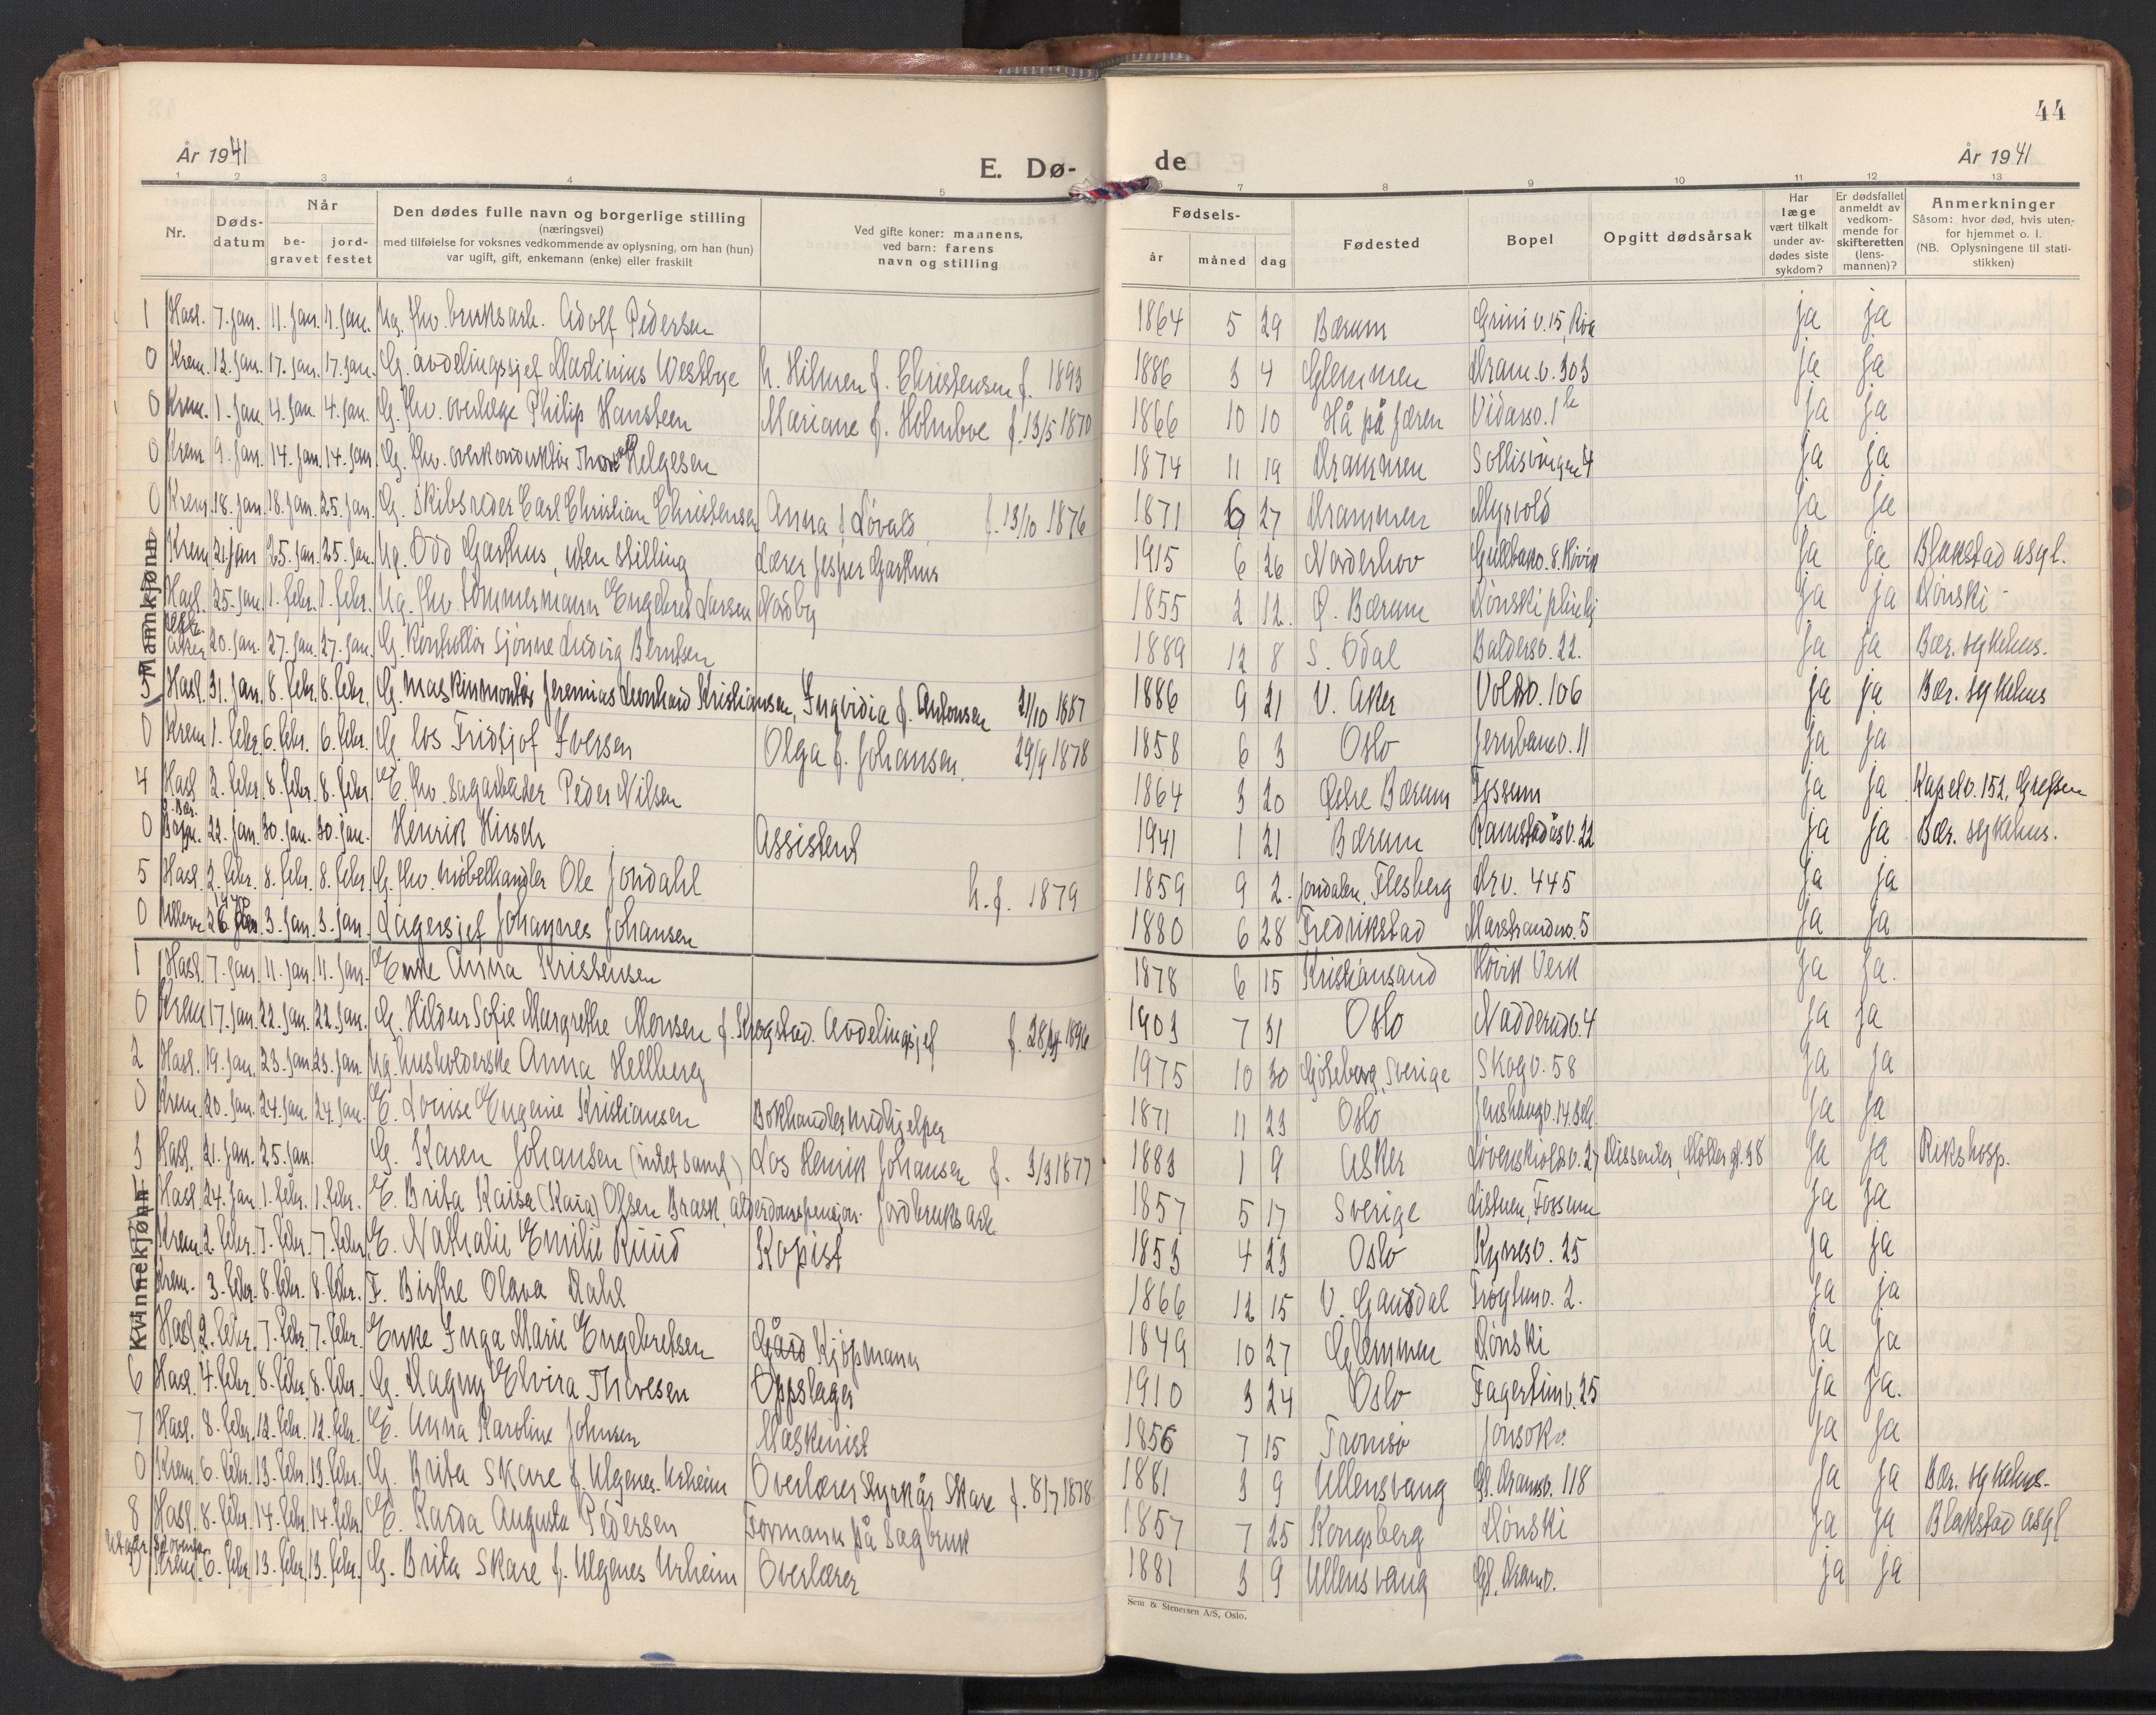 44
År 1941
E. Dø-
de
År 1941
1 2 3 4 5 6 7 8 9 10 11 12 13
Nr.
Døds-
datum
Når
be-
gravet
jord-
festet
Den dødes fulle navn og borgerlige stilling
(næringsvei)
med tilføielse for voksnes vedkommende av oplysning, om han (hun)
var ugift, gift, enkemann (enke) eller fraskilt
Ved gifte koner: mannens,
ved barn: farens
navn og stilling
Fødsels-
år
måned
dag
Fødested
Bopel
Opgitt dødsårsak
Har
læge
vært tilkalt
under av-
dødes siste
sykdom?
Er dødsfallet
anmeldt av
vedkom-
mende for
skifteretten
(lens-
mannen)?
Anmerkninger
Såsom: hvor død, hvis uten-
for hjemmet o. l.
(NB. Oplysningene til stati-
stikken)
Mannkjønn
1 Hasl. 7. jan. 11. jan. 11. jan. Ug. fhv. bruksarb. Adolf Pedersen 1864 5 29 Bærum Grini v. 15, Røa ja ja
0 Krem. 12. jan. 17. jan. 17. jan. G. avdelingssjef Martinius Westbye h. Hilmen f. Christensen f. 1893 1886 3 4 Glemmen Dram.v. 303 ja ja
0 Krem. 1. jan. 4. jan. 4. jan. G. fhv. overlæge Philip Hansteen Mariane f. Holmboe f. 13/5 1870 1866 10 10 Hå på Jæren Vidarsv. 1b ja ja
0 Krem. 9. jan. 14. jan. 14. jan. G. fhv. overkonduktør Thorvald Helgesen 1874 11 19 Drammen Sollisvingen 4 ja ja
0 Krem. 18. jan. 18. jan. 25. jan. G. Skibsreder Carl Christian Christensen Anna f. Løvald f. 13/10 1876 1871 6 27 Drammen Myrvold ja ja
Krem. 21. jan. 25. jan. 25. jan. Ug. Odd Garthus, uten stilling Lærer Jesper Garthus 1915 6 26 Norderhov 8. Høvik ja ja Blakstad asyl.
Hasl. 25. jan. 1. febr. 1. febr. Ug. fhv. tømmermann Engebret Larsen Nadby 1855 2 12. Ø. Bærum Dønski pleiehj ja ja Dønski
Vestre Aker 20. jan. 27. jan. 27. jan. G. Kontrollør Sjønne Ludvig Berntsen 1889 12 8 S. Odal Baldersv. 22. ja ja Bær. sykehus.
3 Hasl. 31. jan. 8. febr. 8. febr. G. maskinmontør Jeremias Leonhard Kristiansen, Ingvidia f. Antonsen 21/10 1887 1886 9 21 V. Aker Vollsv. 106 ja ja Bær. sykehus
0 Krem. 1. febr. 6. febr. 6. febr. G. los Fridtjof Iversen Olga f. Johansen. 29/9 1878 1858 6 3 Oslo Jernbanev. 11 ja ja
4 Hasl. 3. febr. 8. febr. 8. febr. E. fhv. sagarbeider Peder Nilsen 1864 3 20 Østre Bærum Fossum ja ja Kapelv. 152, Grefsen
0 22. jan. 30. jan. 30. jan. Henrik Hirsch Assistent 1941 1 21 Bærum Ramstadåsv. 22 ja ja Bær. sykehus.
5 Hasl. 2. febr. 8. febr. 8. febr. G. fhv. møbelhandler Ole Jondahl h. f. 1879 1859 9 2. Jondalen, Flesberg Drv. 445 ja ja
0 Ullern 26 3. jan. 3. jan. Lagersjef Johannes Johansen 1880 6 28 Fredrikstad Marstranderv. 5 ja ja
Kvinnekjønn
1 Hasl. 7. jan. 11. jan. 11. jan. Enke Anna Kristensen 1878 6 15 Kristiansand Høvik Verk ja ja.
0 Krem. 17. jan. 22. jan. 22. jan. G. Hildur Sofie Margrethe Monsen f. Krogstad. Avdelingsjef f. 28/ 1896 1903 7 31 Oslo Nadderudv. 4 ja ja
2 Hasl. 19. jan. 23. jan. 23. jan. Ug. husholderske Anna Hellberg 1975 10 30 Göteborg, Sverige Skogv. 58 ja ja
0 Krem. 20. jan. 24. jan. 24. jan. E. Louise Eugenie Kristiansen Bokhandlermedhjelper 1871 11 23 Oslo Jenshaugv. 14. ja ja
3 Hasl. 21. jan. 25. jan. G. Karen Johansen (intet saml.) Los Henrik Johansen f. 3/3 1877 1883 1 9 Asker Løvenskioldsv. 27 Dissenter, Møllergt. 38 ja ja Rikshosp.
Hasl. 24. jan. 1. febr. 1. febr. E. Brita Kaisa (Kaia) Olsen Brask, alderdomspensjon. Jordbruksarb. 1857 5 17 Sverige Listuen, Fossum ja ja
Krem. 2. febr. 7. febr. 7. febr. E. Nathalie Emilie Ruud Kopist 1853 4 23 Oslo v. 25 ja ja
Krem. 3. febr. 8. febr. 8. febr. F. Birthe Olava Dahl 1866 12 15 V. Gausdal Trogtunv. 2. ja ja
Hasl. 2. febr. 7. febr. 7. febr. Enke Inga Marie Engebretsen Gård Kjøpmann 1849 10 27 Glemmen Dønski ja ja
6 Hasl. 4. febr. 8. febr. 8. febr. G. Dagny Elvira Thoresen Oppslager 1910 3 24 Oslo Fagertunv. 25 ja ja.
7 Hasl. 8. febr. 12. febr. 12. febr. E. Anna Karoline Johnsen Maskenist 1856 7 15 Tromsø Jonsokv. ja ja
0 Krem. 6. febr. 13. febr. 13. febr. G. Brita Skare f. Ulgenes Urheim Overlærer Styrkår Skare f. 8/7 1878 1881 3 9 Ullensvang Gl. Dramsv. 118 ja ja Bær. sykehus.
8 Hasl. 8. febr. 14. febr. 14. febr. E. Karda Augusta Pedersen Formann på Sagbruk 1857 7 25 Kongsberg Dønski ja ja Blakstad asyl
Utgår. Se ovenfor
0 Krem. 6. febr. 13. febr. 13. febr. G. Brita Skare f. Ulgenes Urheim Overlærer 1881 3 9 Ullensvang Gl. Dramv. ja ja
Sem & Stenersen A/S, Oslo.